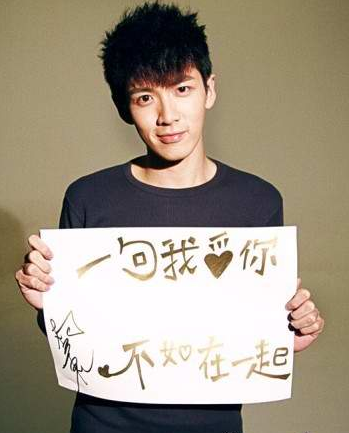 一句我爱你
不如在一起